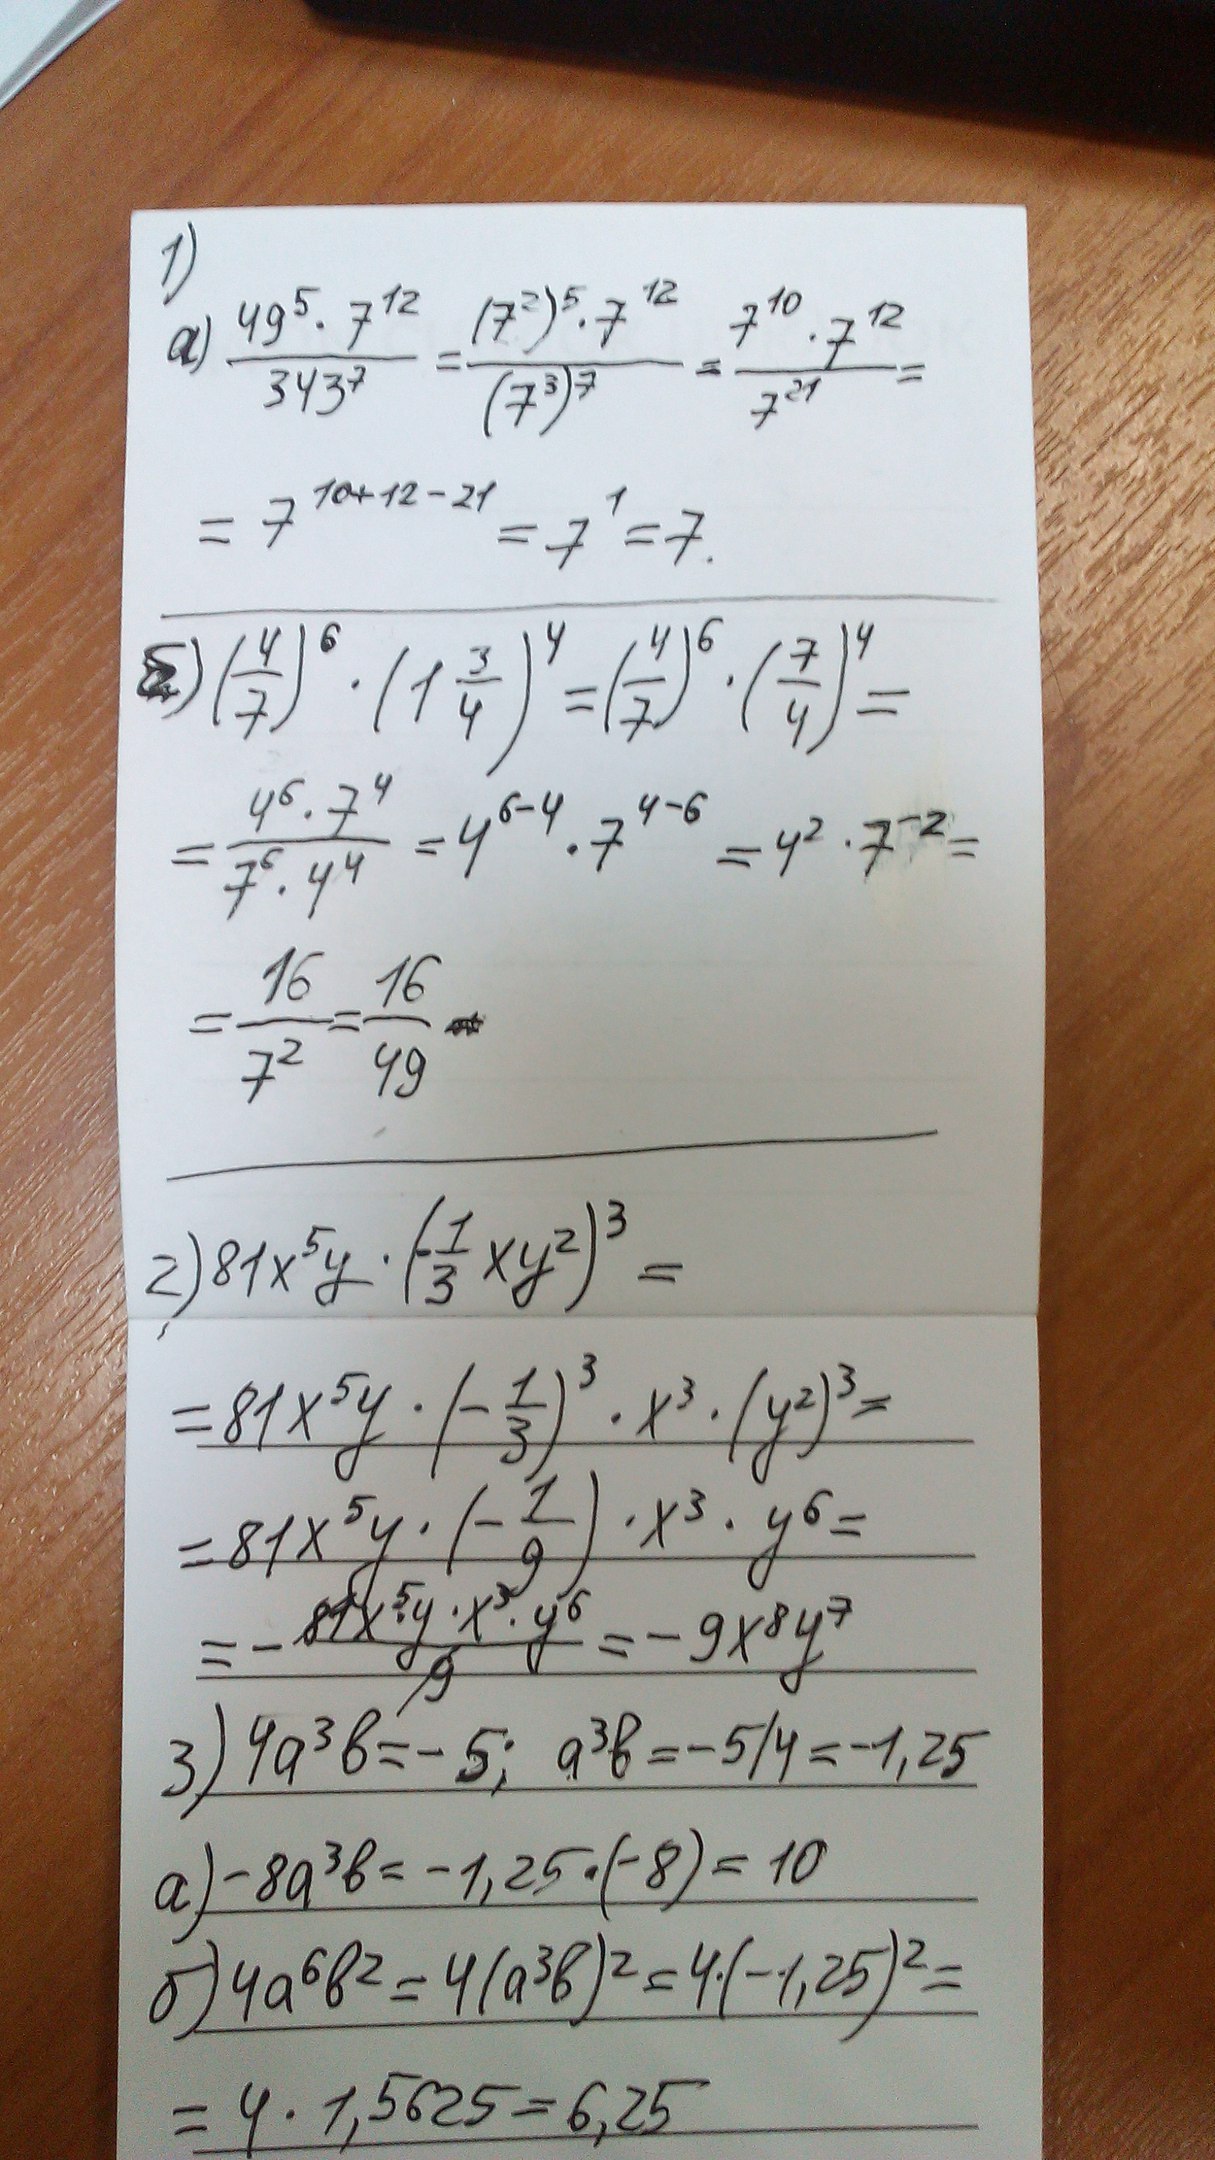 1)
а) 49⁵·7¹²/343⁷ = (7²)⁵·7¹²/(7³)⁷ = 7¹⁰·7¹²/7²¹ =
= 7¹⁰⁺¹²⁻²¹ = 7¹ = 7.
б) (4/7)⁶ · (1 3/4)⁴ = (4/7)⁶ · (7/4)⁴ =
= 4⁶·7⁴/7⁶·4⁴ = 4⁶⁻⁴ · 7⁴⁻⁶ = 4² · 7⁻² =
= 16/7² = 16/49
2) 81x⁵y · (-1/3 xy²)³ =
= 81x⁵y · (-1/3)³ · x³ · (y²)³ =
= 81x⁵y · (-1/9) · x³ · y⁶ =
= - 81x⁵y·x³·y⁶/9 = -9x⁸y⁷
3) 4a³b = -5; a³b = -5/4 = -1,25
а) -8a³b = -1,25·(-8) = 10
б) 4a⁶b² = 4(a³b)² = 4·(-1,25)² =
= 4 · 1,5625 = 6,25